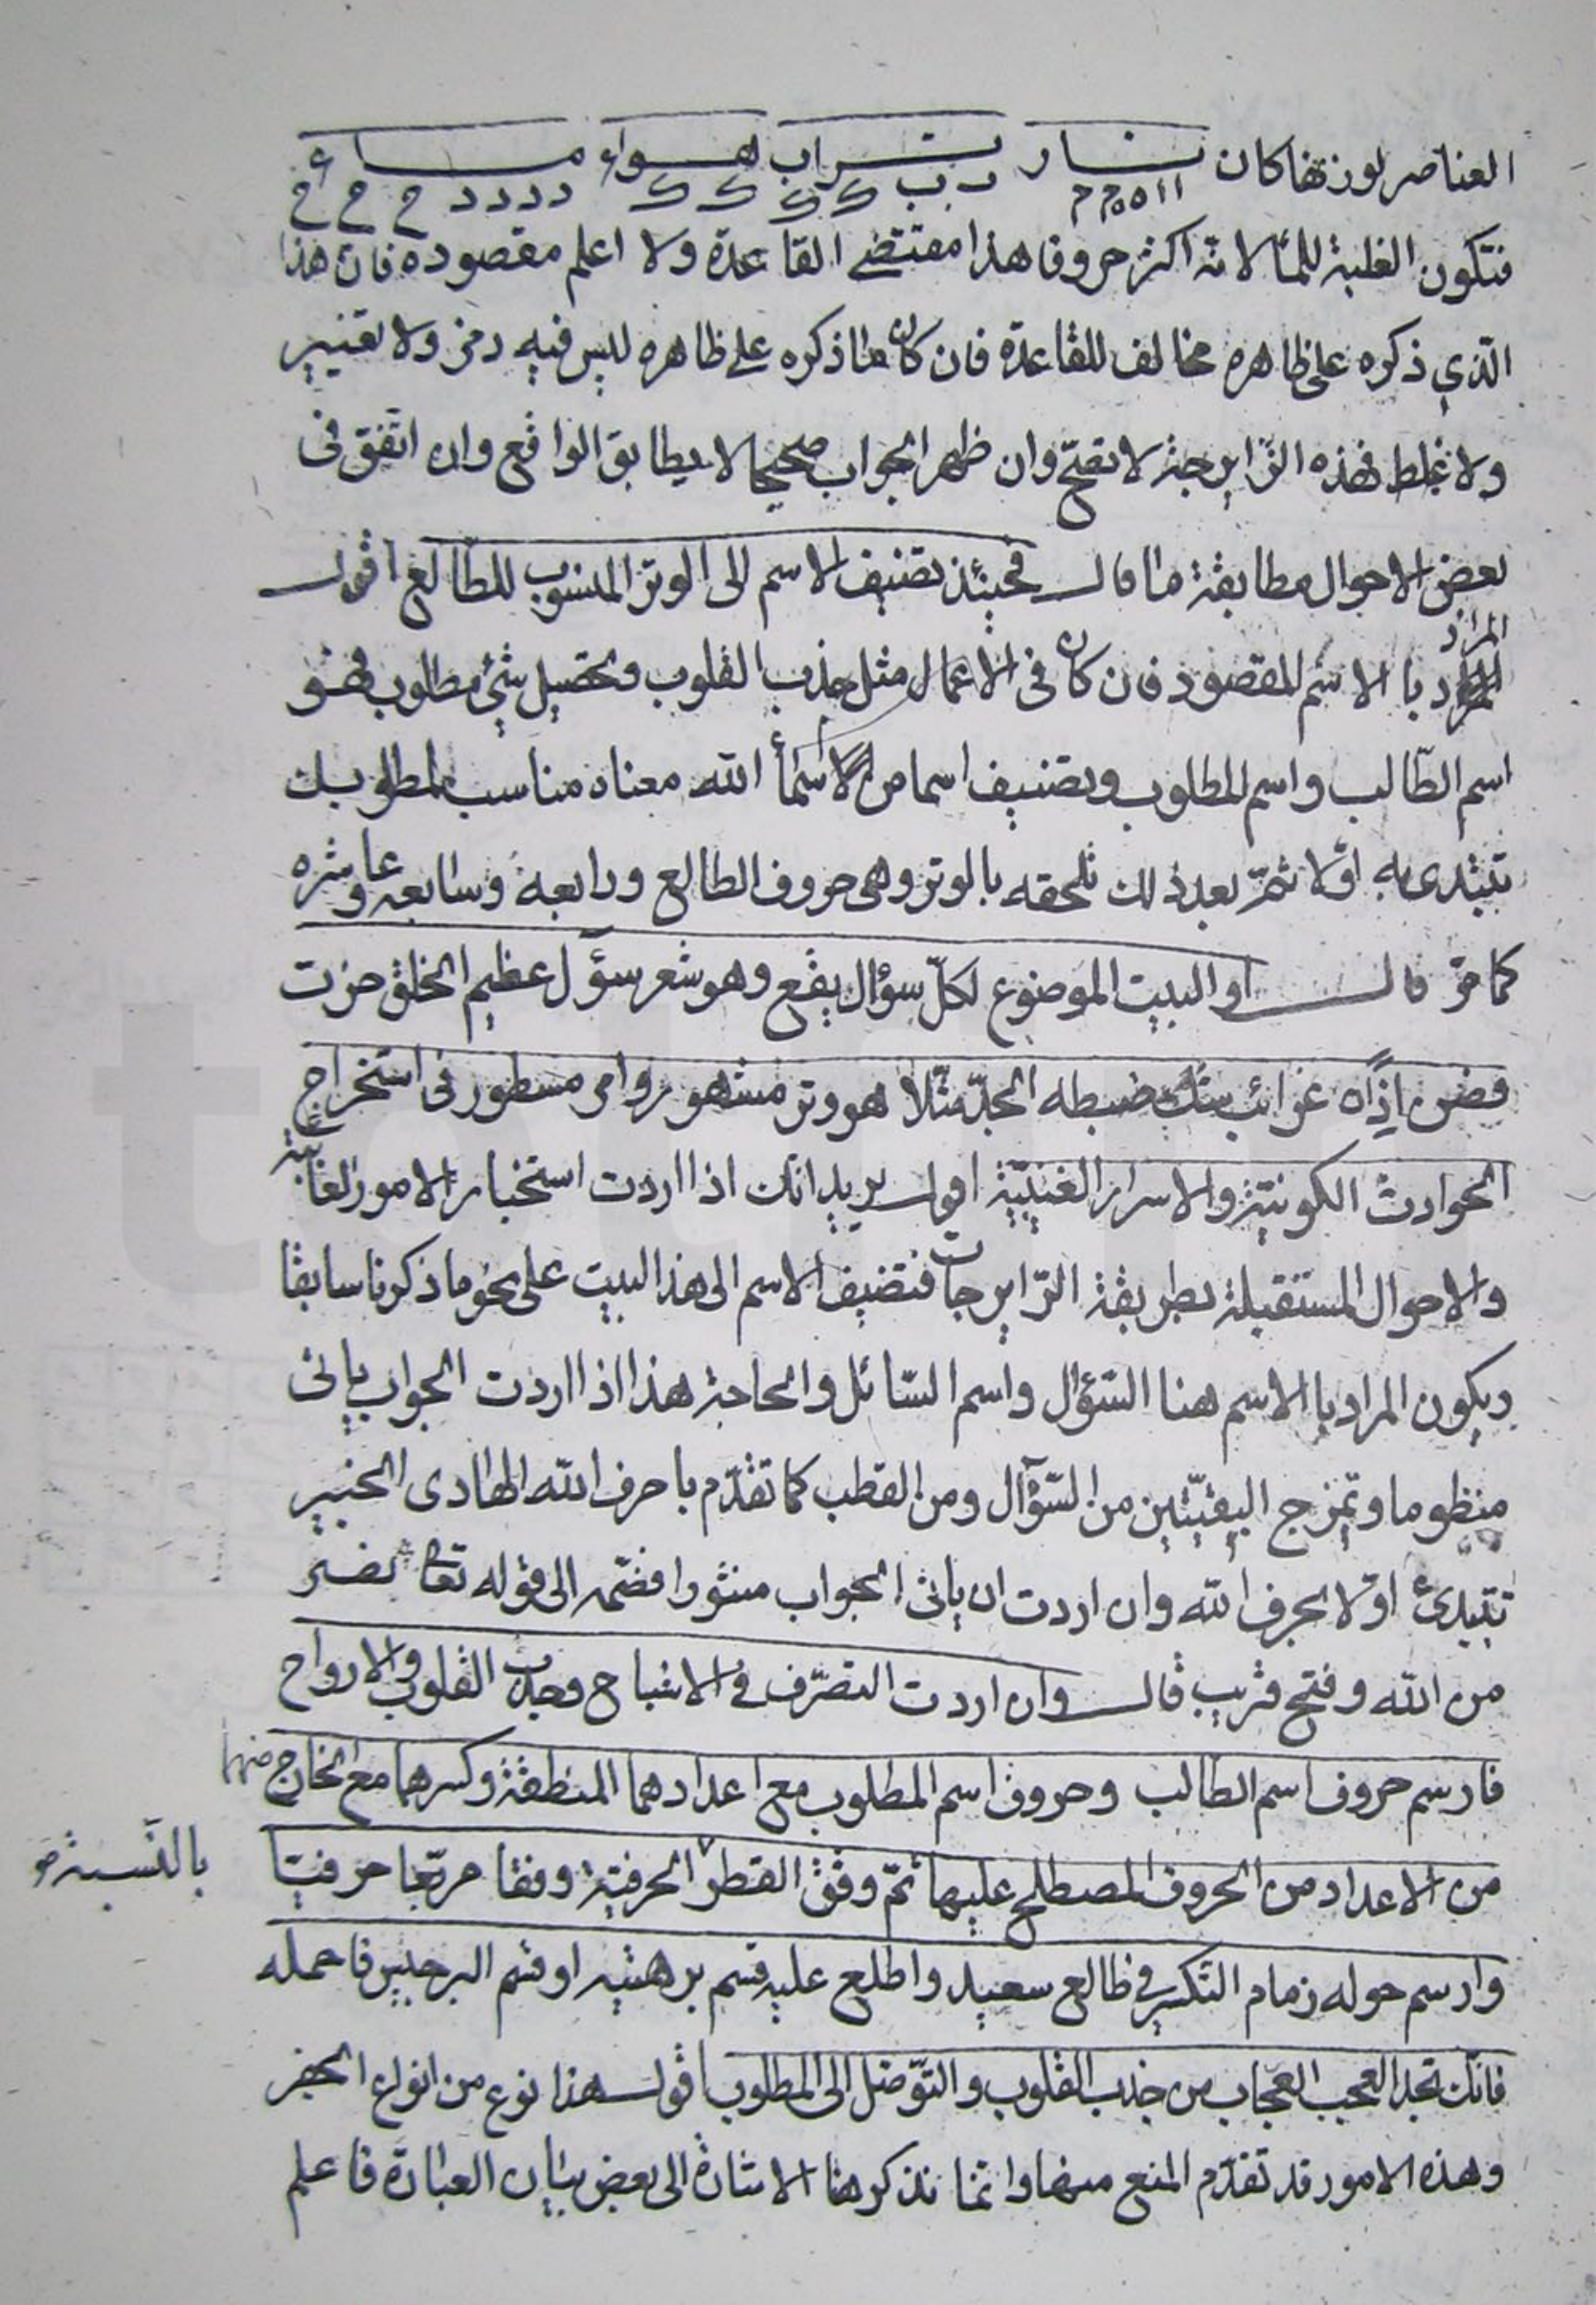 العناصر لوزنها كان نار تراب هواء ماء
ا ا ه ه م م ب ب ك ك ك ك د د د د ح ح ح
فتكون الغلبة للماء لانه اكثر حروفا هذا مقتضى القاعدة ولا اعلم مقصوده فان هذا
الّذي ذكره على ظاهره مخالف للقاعدة فان كان ما ذكره على ظاهره ليس فيه رمز ولا تغيير
ولا غلط فهذه الزّايرجة لا تصحّ وان ظهر الجواب صحيحا لا يطابق الواقع وان اتّفق فى
بعض الاحوال مطابقة ما قال فحينئذ تضيف الاسم الى الوتر المنسوب للطّالع اقول
المراد با الاسم المقصود فان كان فى الاعمال مثل جذب القلوب وتحصيل شئ مطلوب فهو
اسم الطّالب واسم المطلوب وتضيف اسما من اسمأ الله معناه مناسب لمطلوبك
تبتدى به اوّلا ثمّ بعد ذلك تلحقه بالوتر وهى حروف الطالع ورابعه وسابعه وعاشره
كما مرّ قال او البيت الموضوع لكلّ سؤال يقع وهو شعر سؤل عظيم الخلق حزت
فصن اذًا غرائب شكّ ضبطه الجدّ مثّلا هو وتر مشهور وامر مسطور فى استخراج
الحوادث الكونيّة والاسرار الغيبيّة اقول يريد انّك اذا اردت استخبار الامور الغائبة
والاحوال المستقبلة بطريقة الزّايرجات فتضيف الاسم الى هذا البيت على نحو ما ذكرنا سابقا
ويكون المراد با الاسم هنا السّؤال واسم السّائل والحاجة هذا اذا اردت الجواب ياتى
منظوما وتمزج البيتين من السّؤال ومن القطب كما تقدّم باحرف الله الهادى الخبير
تبتدئ اوّلا بحرف الله وان اردت ان ياتى الجواب منثورا فضمّه الى قوله تعالى نصر
من الله وفتح قريب قال وان اردت التصرّف فى الاشباح وجذب القلوب والارواح
فارسم حروف اسم الطالب وحروف اسم المطلوب مع اعدادهما المنطقة وكسرهما مع الخارج منهما
من الاعداد من الحروف المصطلح عليها ثمّ وفق القطر الحرفية وفقا مربّعا حرفيّا
بالنّسبة
وارسم حوله زمام التكسير فى طالع سعيد واطلع عليه قسم برهتيه او قسم البرجيس فاحمله
فانّك تجد العجب العجاب من جذب القلوب والتّوصّل الى المطلوب اقول هذا نوع من انواع الجفر
وهذه الامور قد تقدّم المنع منها وانّما نذكر هنا الاشارة الى بعض بيان العبارة فاعلم